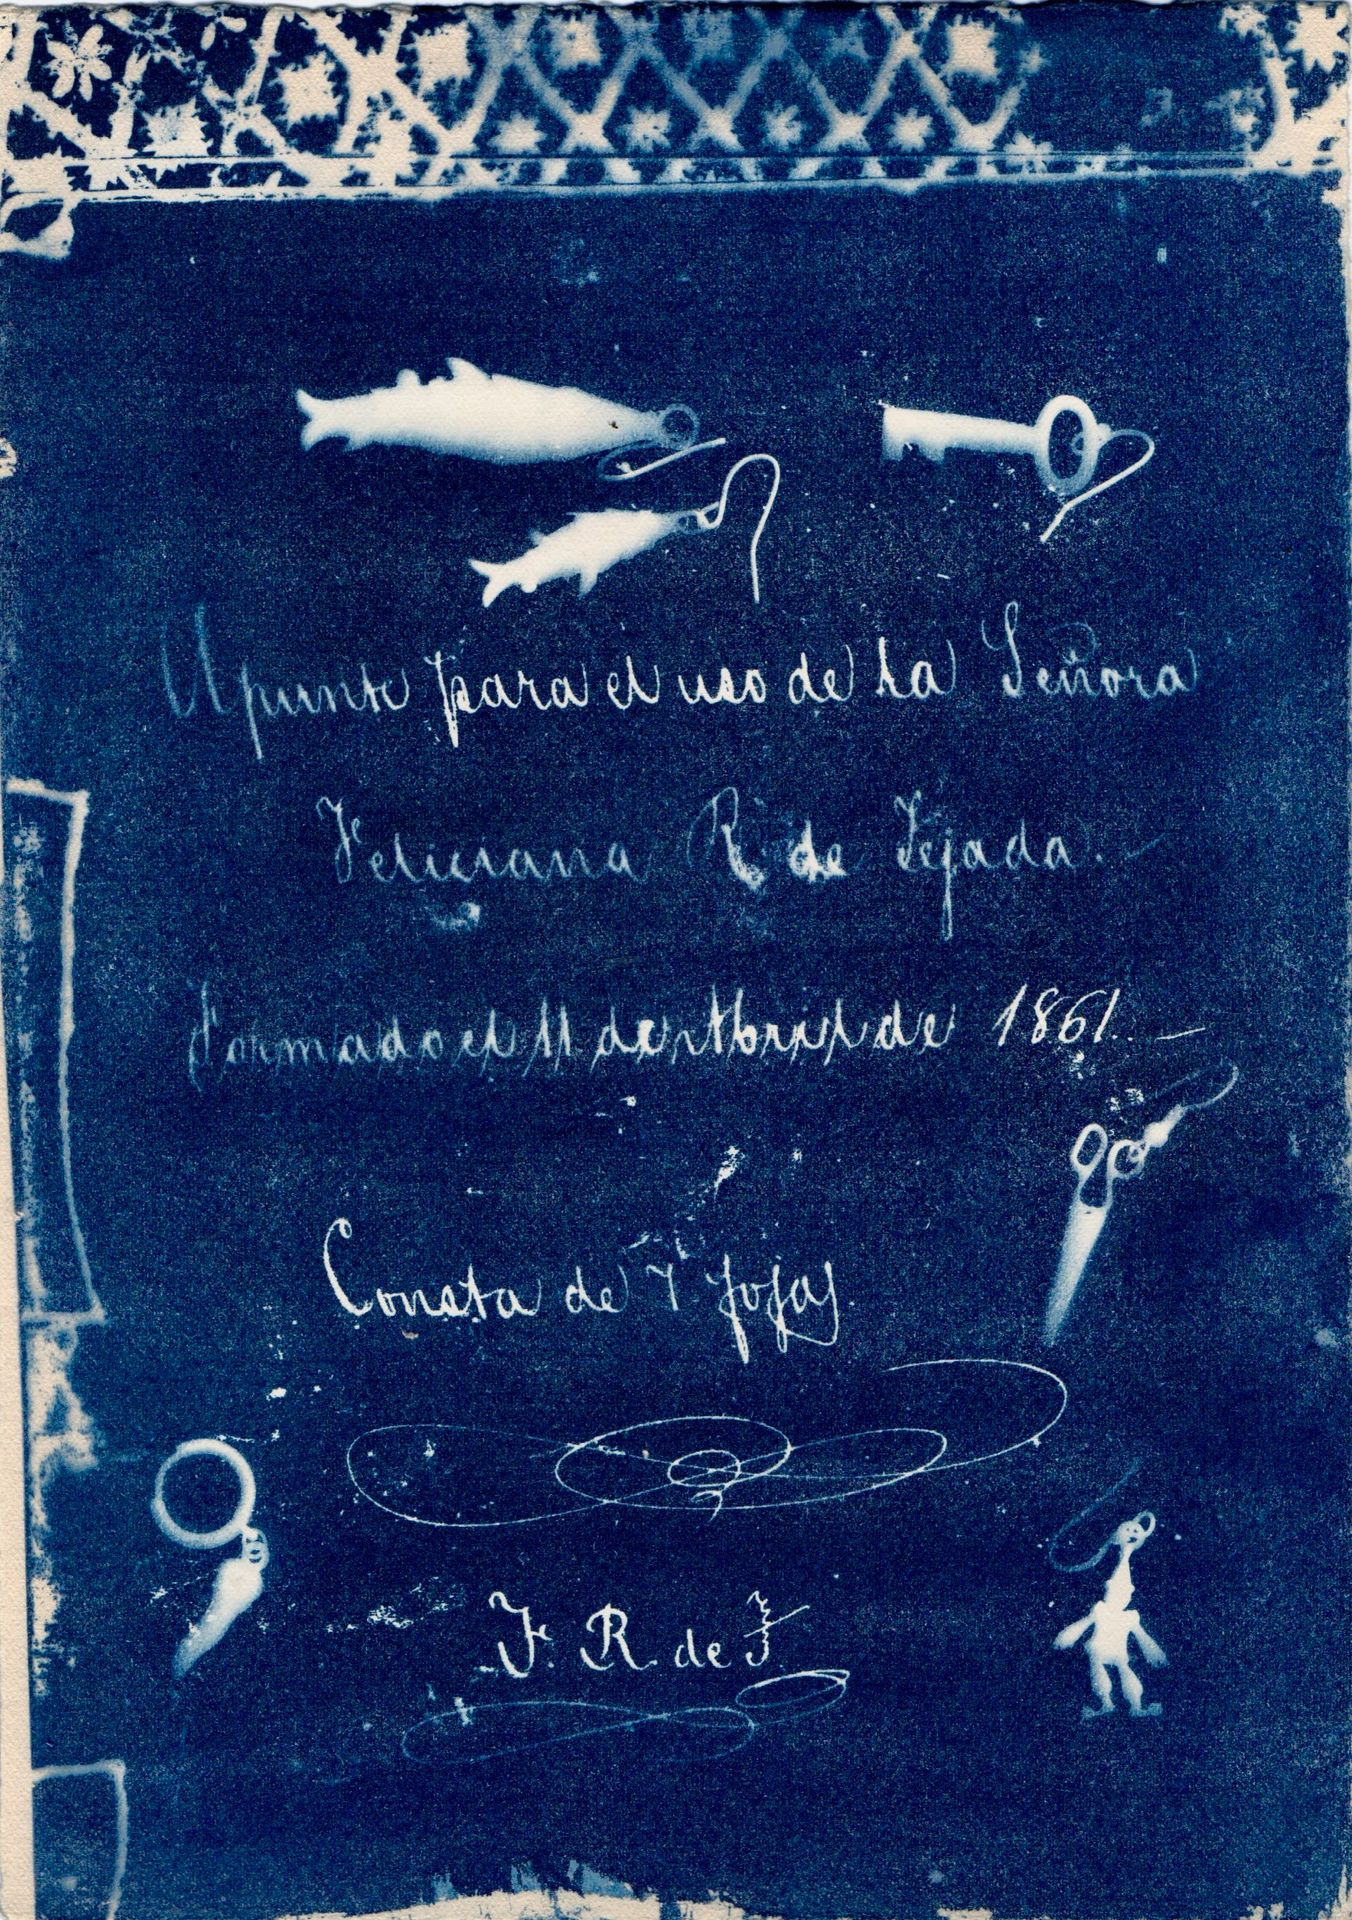 Apunte para el uso de la Señora
Feliciana R de Tejada.
Formado el 11 de Abril de 1861.
Consta de 7 fojas
F. R. de T